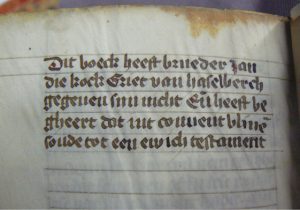 Dit boeck heeft brueder Jan
die kock Griet van haselberch
gegeuen sijn nicht Eñ heeft be
gheert dat int conuent bliuē
soude tot een ewich testament